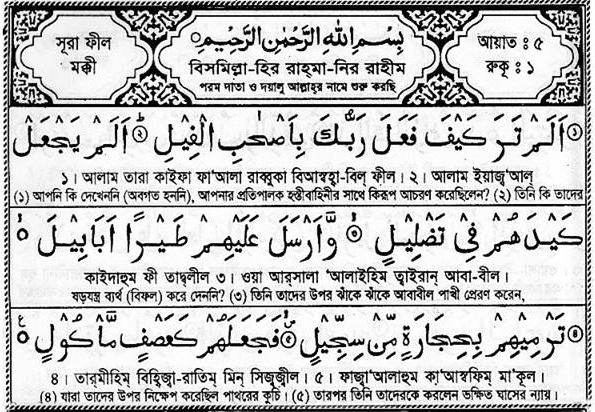 সূরা ফীল
মক্কী
بِسْمِ اللّٰهِ الرَّحْمٰنِ الرَّحِيْمِ
বিসমিল্লা-হির রাহ্মা-নির রাহীম
পরম দাতা ও দয়ালু আল্লাহ্‌র নামে শুরু করছি
আয়াত : ৫
রুকূ : ১
اَلَمْ تَرَ كَيْفَ فَعَلَ رَبُّكَ بِاَصْحٰبِ الْفِيْلِ اَلَمْ يَجْعَلْ
১। আলাম তারা কাইফা ফা'আলা রাব্বুকা বিআস্বহা-বিল্ ফীল। ২। আলাম ইয়াজ্'আল্
(১) আপনি কি দেখেননি (অবগত হননি), আপনার প্রতিপালক হস্তীবাহিনীর সাথে কিরূপ আচরণ করেছিলেন? (২) তিনি কি তাদের
كَيْدَهُمْ فِيْ تَضْلِيْلٍ وَّاَرْسَلَ عَلَيْهِمْ طَيْرًا اَبَابِيْلَ
কাইদাহুম ফী তাদ্বলীল ৩। ওয়া আর্সালা 'আলাইহিম ত্বাইরান্ আবা-বীল।
ষড়যন্ত্র ব্যর্থ (বিফল) করে দেননি? (৩) তিনি তাদের উপর ঝাঁকে ঝাঁকে আবাবীল পাখী প্রেরণ করেন,
تَرْمِيْهِمْ بِحِجَارَةٍ مِّنْ سِجِّيْلٍ فَجَعَلَهُمْ كَعَصْفٍ مَّاْكُوْلٍ
৪। তার্মীহিম্ বিহ্বিজ্বা-রাতিম্ মিন্ সিজ্জ্বীল। ৫। ফাজ্বা'আলাহুম কা'আস্বফিম্ মা'কূল।
(৪) যারা তাদের উপর নিক্ষেপ করেছিল পাথরের কুচি। (৫) তারপর তিনি তাদেরকে করলেন ভক্ষিত ঘাসের ন্যায়।